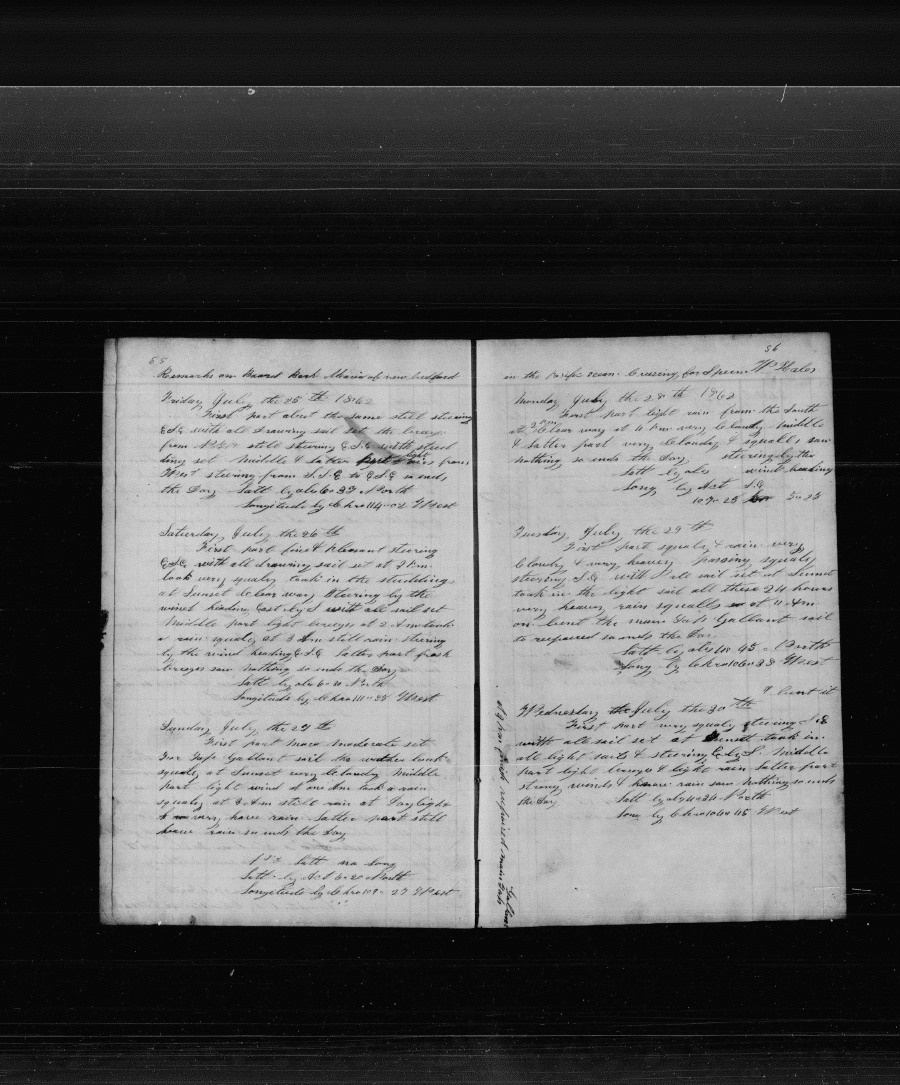 55
Remarks on Board Bark Maria of new bedford
Friday July the 25th 1862
First part about the same still steering
E.S.E with all drawing sail set the breeze
from still steering E.S.E with stud
ding set Middle & Latter light from
West steering from S.S.E to E.S.E so ends
the Day Latt by obs 6o 33 North
Longitude by Chro 114 = 02 West
Saturday July the 26th
First part fine & Pleasant steering
E.S.E with all drawing sail set at 2 P.m.
look very squaly took in the studdings
at Sunset Clear way Steering by the
wind heading East by S with all sail set
Middle part light breezes at 2 A m took
a rain squaly at 3 Am still rain steering
by the wind heading E.S.E Latter part fresh
breezes saw nothing so ends the Day
Latt by obs 6 = 20 North
Longitude by Chro 111 = 35 West
Sunday July the 27th
First part more moderate set
For Top Gallant sail the wether look
squaly at Sunset very Cloudy Middle
part light wind at one Am took a rain
squaly at 3 Am still rain at Day light
very have rain Latter part still
have rain so ends the Day
Latt no Long
Latt by Act 6 = 20 North
Longitude by Chro 109 = 27 West
56
in the Pacific ocean Cruesing for Sperm Whales
Monday July the 28th 1862
First part light rain from the South
at 2 pm Clear way at 4 Pm very Cloudy Middle
& Latter part very Cloudy & squalls saw
nothing so ends the Day steering by the
Latt by obs wind heading
Long by Act S.E
107 = 25 5 = 25
Tuesday July the 29th
First part squaly & rain very
Cloudy & very heavey passing squaly
steering S.E with all sail set at Sunset
took in the light sail all these 24 hours
very heavey rain squalls at 11 Am
on bent the main Top Gallant sail
to repaired so ends the Day
Latt by obs 4o 45 = North
Long by Chro 106o 33 West
& bent it
Wednesday July the 30th
First part very squaly steering S.E
with all sail set at Sunset took in
all light sails & steering E by S. Middle
part light breezes & light rain Latter part
strong winds & have rain saw nothing so ends
the Day Latt by obs 4o 34 North
Long by Chro 104o 45 West
repaired main Top
Gallant